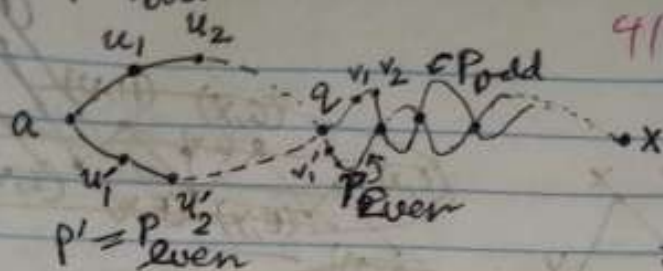 u₁ u₂
41
a
q v₁ v₂ P odd
x
u'₁ u'₂ v₁ P even
P' = P even